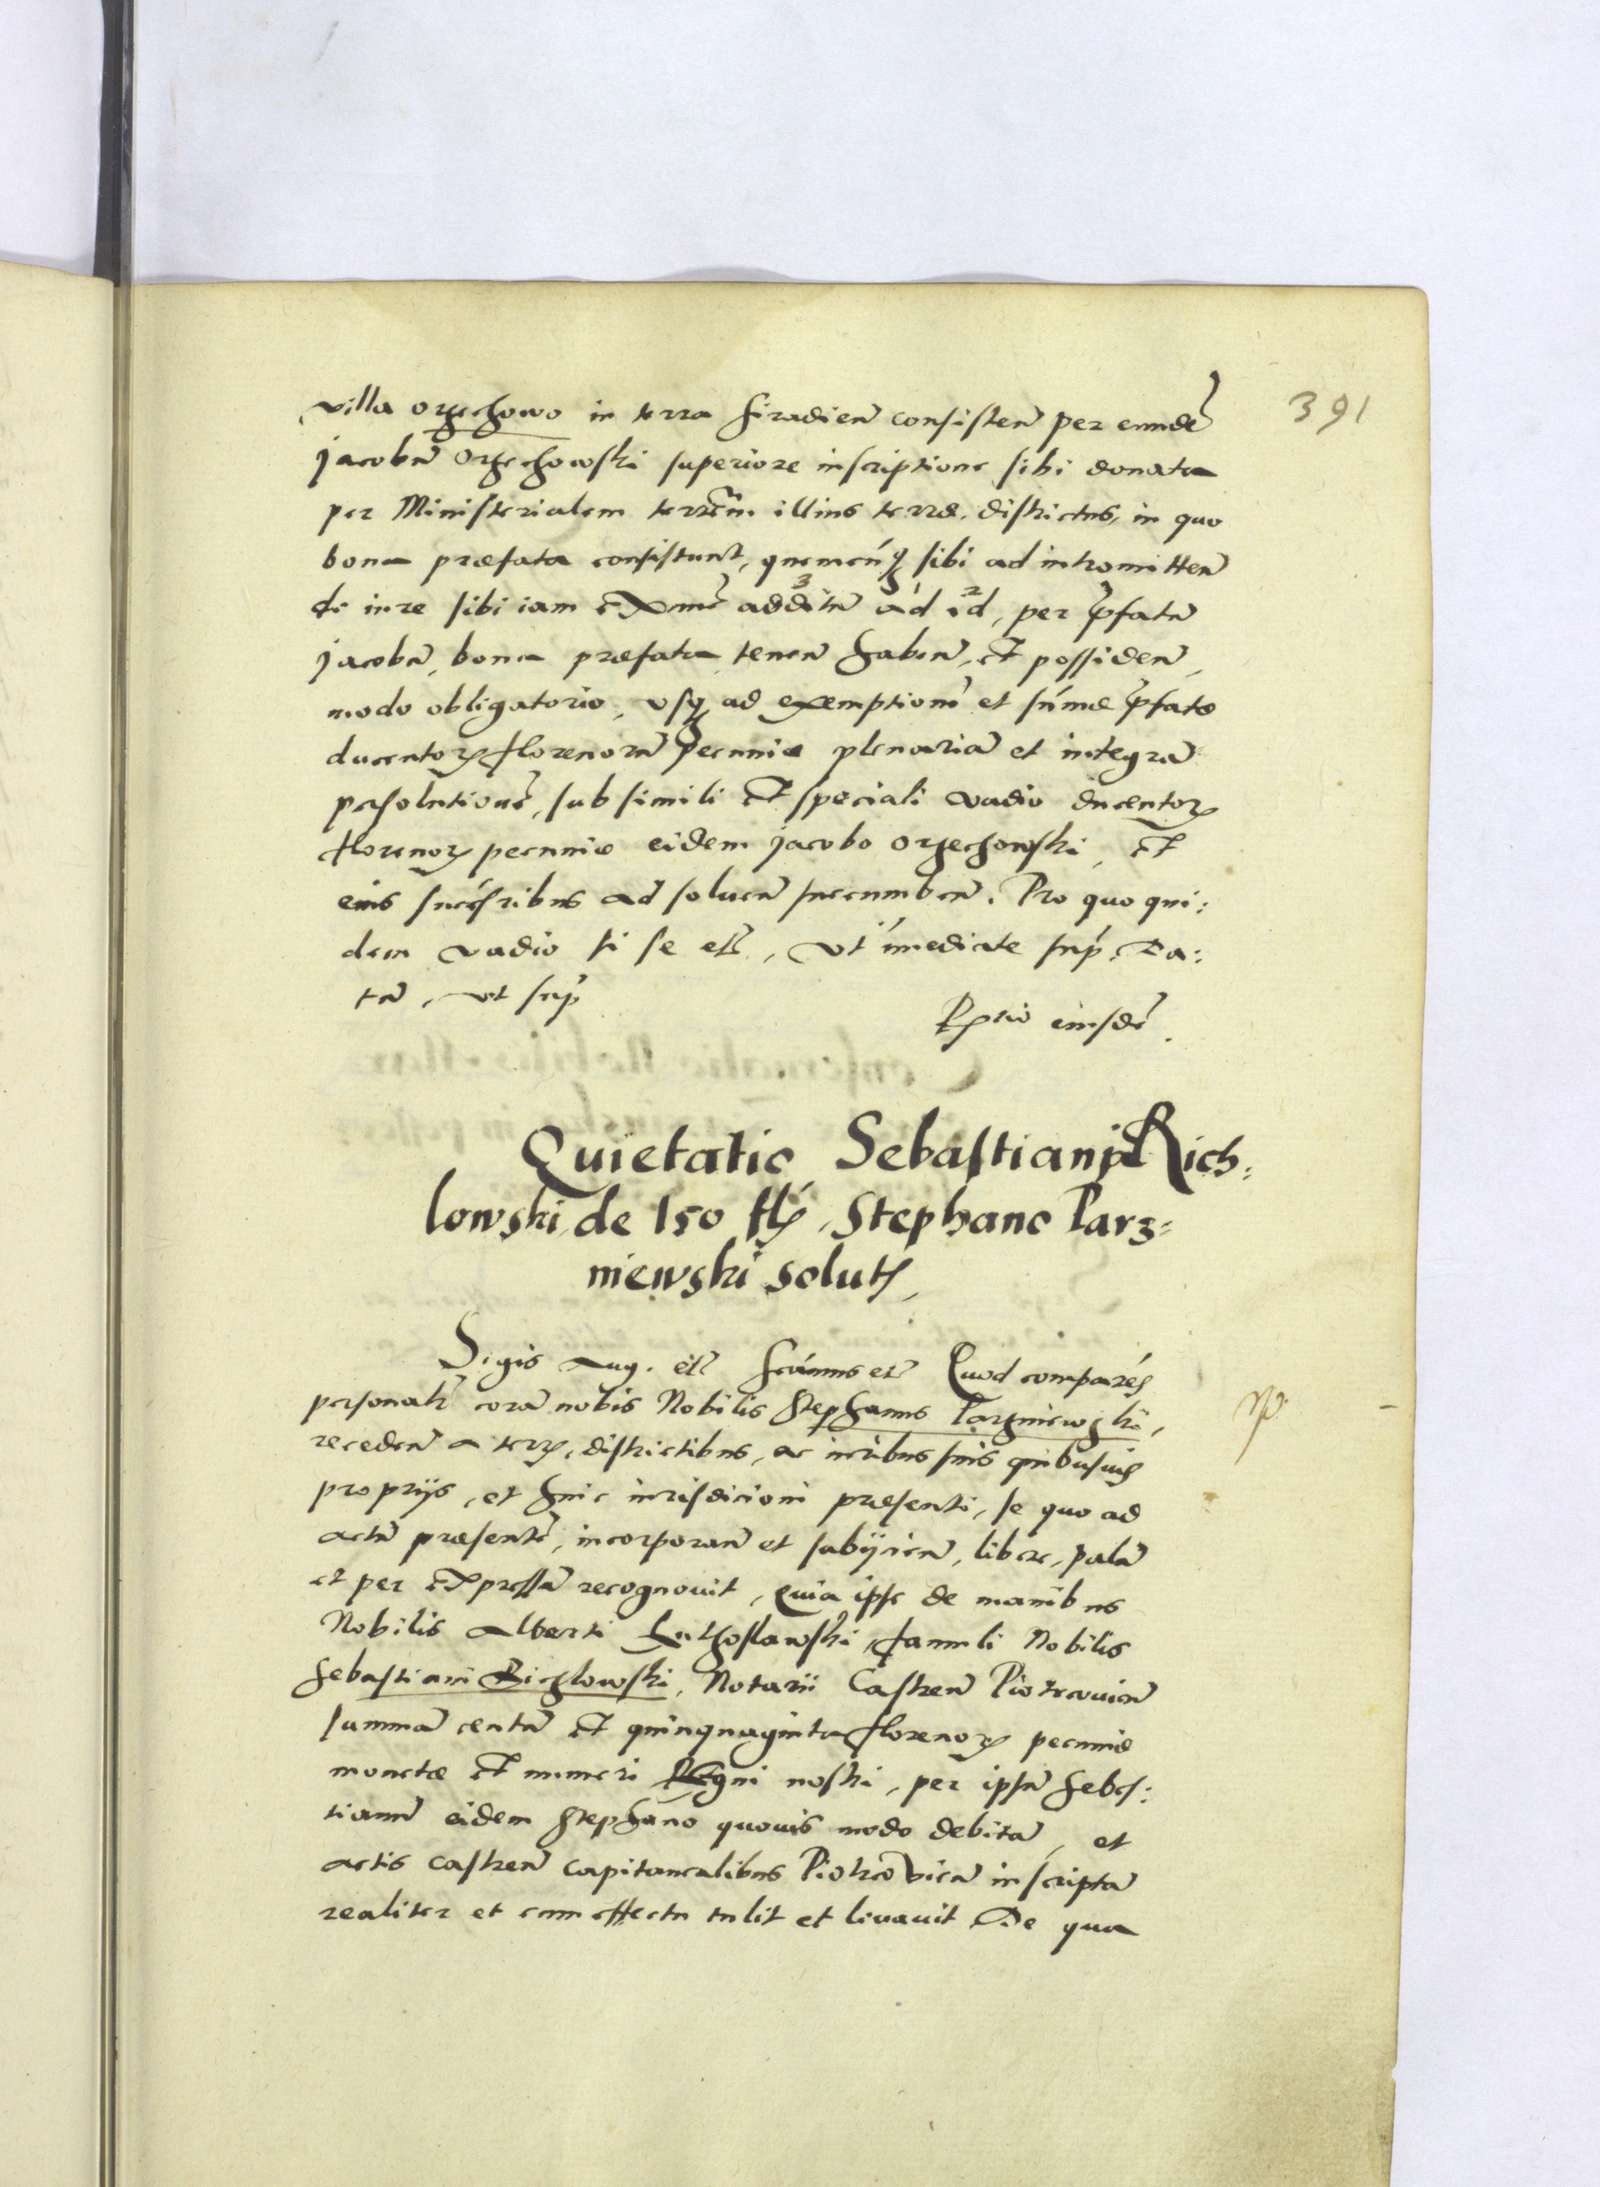 391
villa Orzechowo in terra Siradien̄ consisten̄ per eundē
Jacobū Orzechowski superiore inscriptione sibi donata
per Ministerialem terrēm illius terræ, districtus, in quo
bona præfata consistunt, quemcunq sibi ad intromitten̄
de iure sibi iam ex nūc additū ad id, per p̄fatū
Jacobū, bona præfata tenen̄ haben̄, et possiden̄,
modo obligatorio, vsq ad exemptionē et sūmæ p̄fatæ
ducentoꝝ florenorū pecuniæ plenariā et integrā
persolutionē, sub simili et speciali vadio ducentoꝝ
florenoꝝ pecuniæ eidem Jacobo Orzechowski, et
eius succēsribus ad soluen̄ succumben̄. Pro quo qui:
dem vadio si se etc̄, vt īmediate sup̄. Da:
tū, vt sup̄
Rꝝtio eiusdē.
Quietatio Sebastiani Rich:
lowski de 150 flꝝ, Stephano Parz=
niewski solutꝭ,
Sigis Aug. etc̄ Scīmus etc̄ Quod comparēs
personalr̄ corā nobis Nobilis Stephanus Parzniewski,
np.
receden̄ a terꝝ, districtibus, ac iuribus suis quibusuis
proprijs, et huic iurisdicioni præsenti, se quo ad
actū præsentē, incorporan̄ et subijcien̄, libere, palā
et per expressū recognouit, Quia ipse de manibus
Nobilis Alberti Luthoslawski, famuli Nobilis
Sebastiani Richlowski, Notarii Castren̄ Piotrcouien̄
summā centū et quinquaginta florenoꝝ pecuniæ
monetæ et numeri Regni nostri, per ipsū Sebas:
tianū eidem Stephano quouis modo debitā, et
actis castren̄ capitanealibus Piotrcouien̄ inscriptā
realiter et cum effectu tulit et leuauit De qua